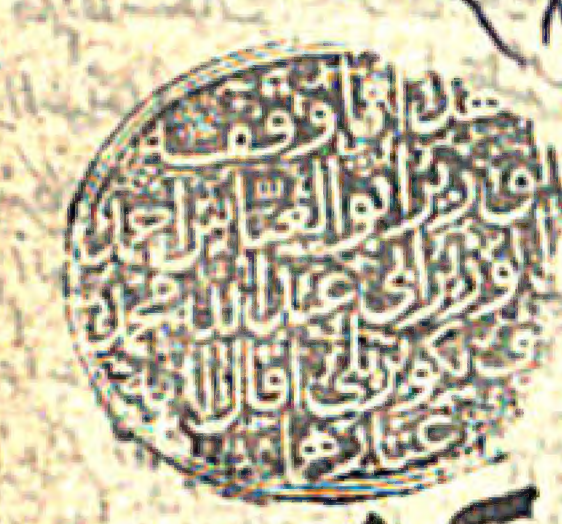 هذا ما وقف
الوزير ابو العباس احمد
الوزير ابي عبد الله محمد
عرف بكوبريلي اقال الله
عثارهما